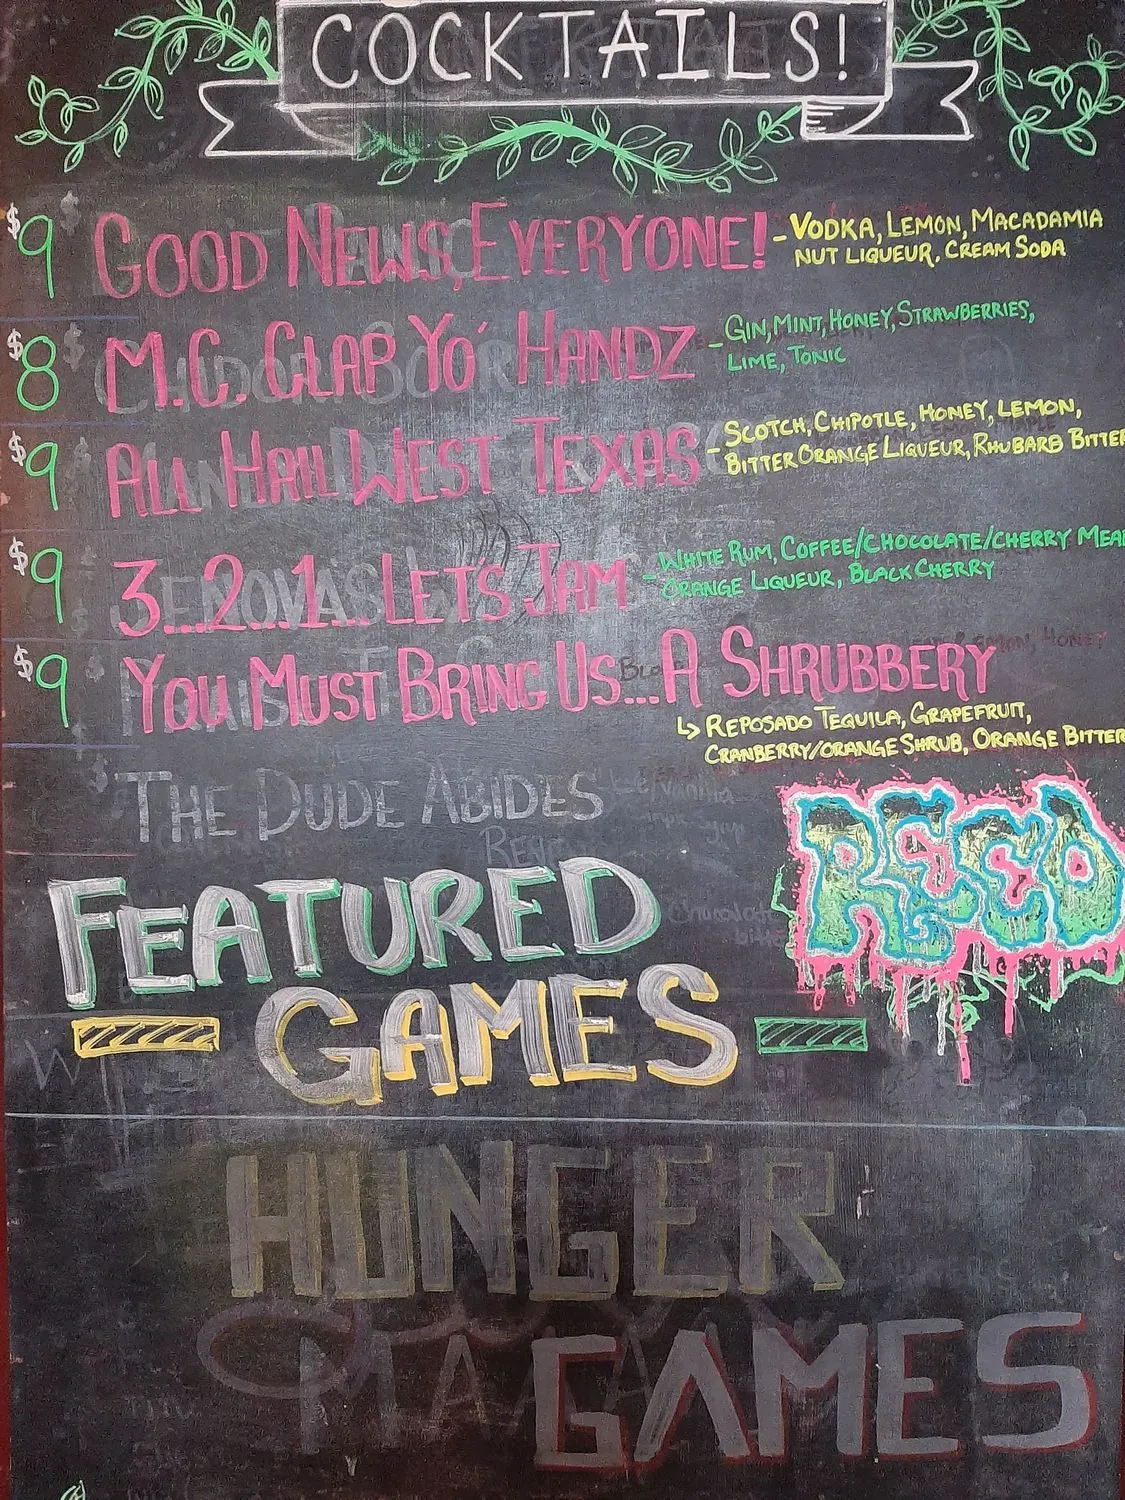 COCKTAILS!
$9 GOOD NEWS, EVERYONE! - VODKA, LEMON, MACADAMIA
NUT LIQUEUR, CREAM SODA
$8 M.C. CLAP YO' HANDZ - GIN, MINT, HONEY, STRAWBERRIES,
LIME, TONIC
$9 ALL HAIL WEST TEXAS - SCOTCH, CHIPOTLE, HONEY, LEMON,
BITTER ORANGE LIQUEUR, RHUBARB BITTER
$9 3...2...1... LETS JAM - WHITE RUM, COFFEE/CHOCOLATE/CHERRY MEA
ORANGE LIQUEUR, BLACK CHERRY
$9 YOU MUST BRING US...A SHRUBBERY
↳ REPOSADO TEQUILA, GRAPEFRUIT,
CRANBERRY/ORANGE SHRUB, ORANGE BITTER
THE DUDE ABIDES
FEATURED
GAMES
HUNGER
GAMES